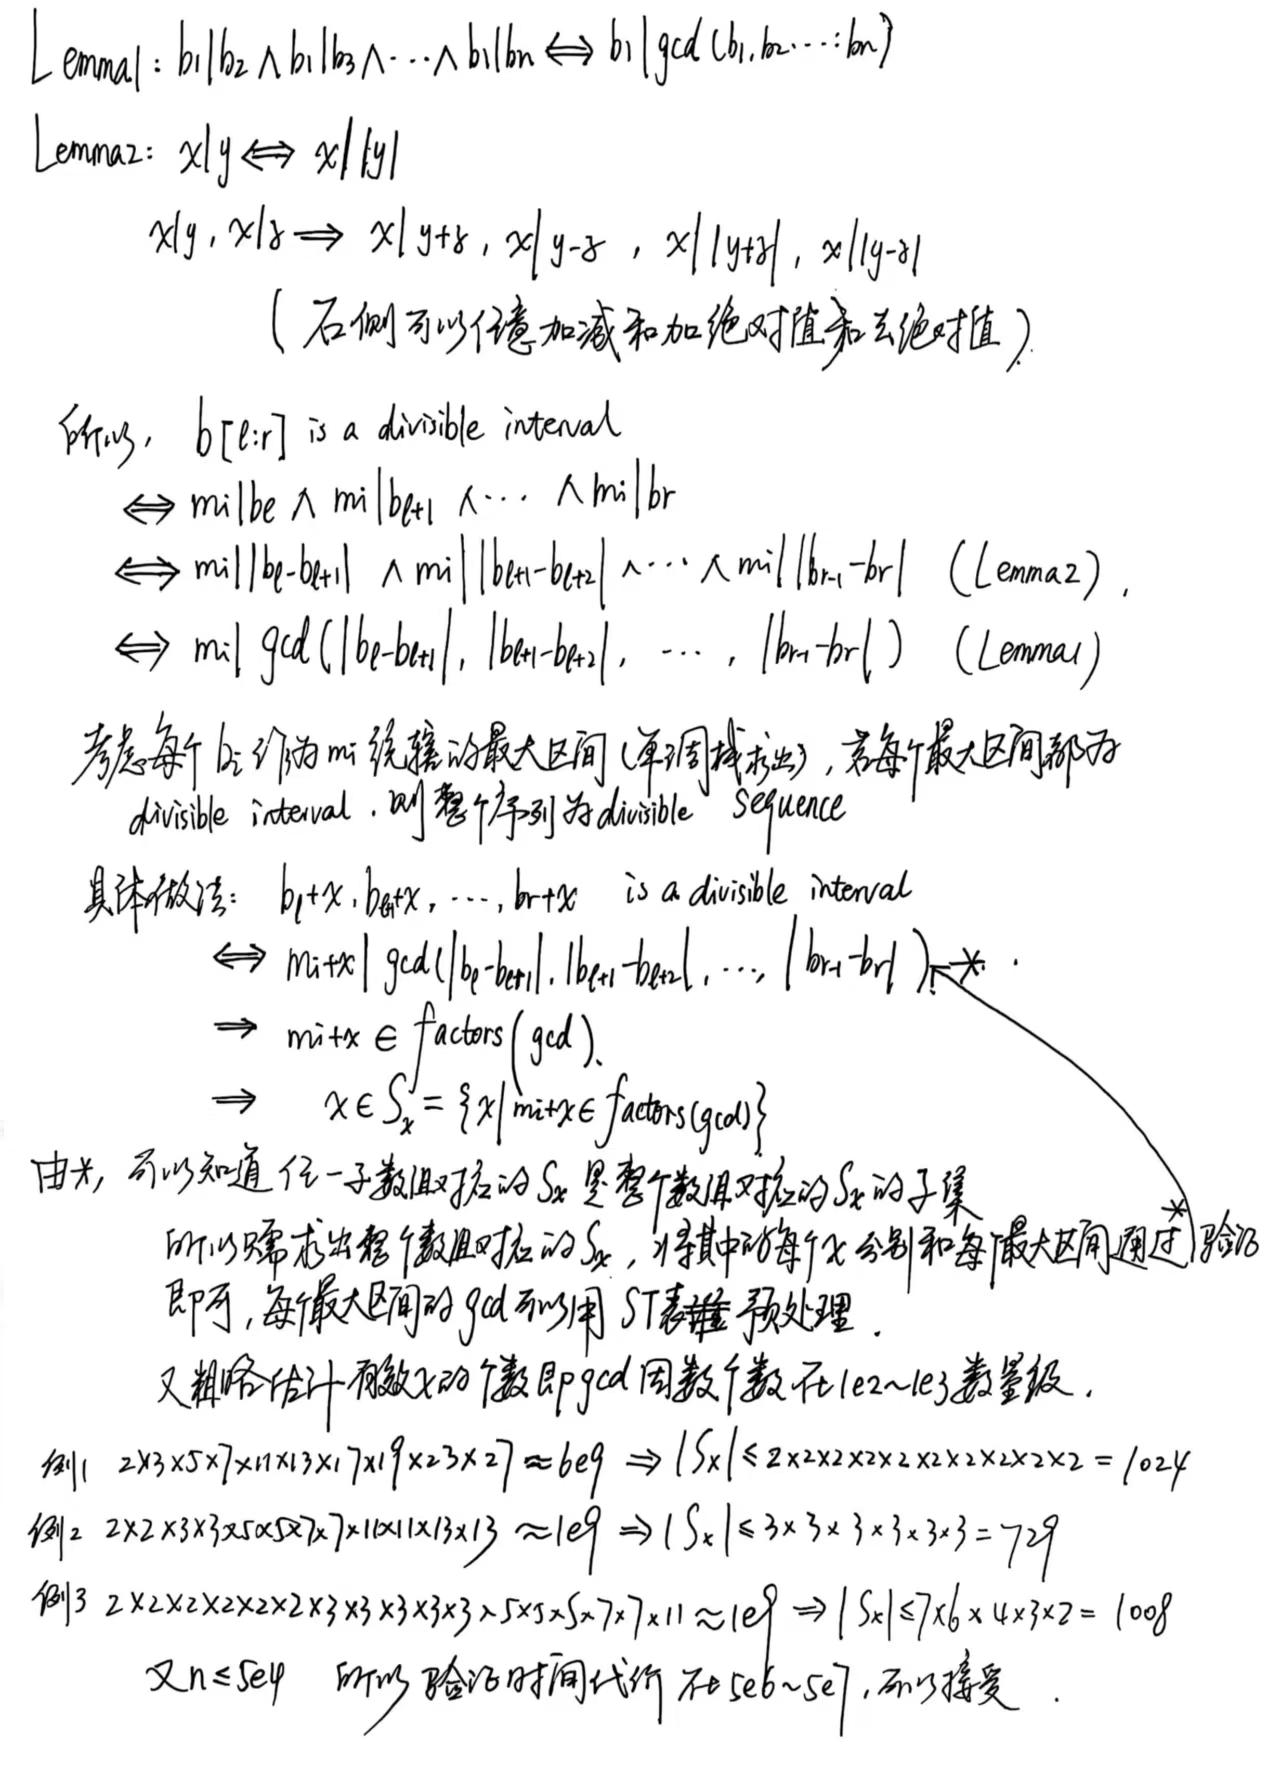 Lemma1: b1|b2 ∧ b1|b3 ∧ ··· ∧ b1|bn ⟺ b1|gcd(b1,b2···:bn)
Lemma2: x|y ⟺ x||y|
x|y, x|z ⟹ x|y+z, x|y-z, x||y+z|, x||y-z|
(右侧可以任意加减和加绝对值和去绝对值).
所以, b[l:r] is a divisible interval
⟺ mi|bl ∧ mi|bl+1 ∧··· ∧ mi|br
⟺ mi||bl-bl+1| ∧ mi||bl+1-bl+2| ∧··· ∧ mi||br-1-br| (Lemma2).
⟺ mi|gcd(|bl-bl+1|, |bl+1-bl+2|, ···, |br-1-br|) (Lemma1)
考虑每个bi作为mi统辖的最大区间(单调栈求出), 若每个最大区间都为
divisible interval, 则整个序列为divisible sequence
具体做法: bl+x, bl+1+x, ···, br+x is a divisible interval
⟺ mi+x|gcd(|bl-bl+1|, |bl+1-bl+2|, ···, |br-1-br|) *.
⟹ mi+x ∈ factors(gcd).
⟹ x ∈ Sx = {x|mi+x ∈ factors(gcd)}
由*, 可以知道任一子数组对应的Sx是整个数组对应的Sx的子集
所以只需求出整个数组对应的Sx, 将其中的每个x分别和每个最大区间通过*验证
即可, 每个最大区间的gcd可以用ST表预处理.
又粗略估计有效x的个数即gcd因数个数在1e2~1e3数量级.
例1 2×3×5×7×11×13×17×19×23×27≈6e9 ⟹ |Sx|≤2×2×2×2×2×2×2×2×2×2=1024
例2 2×2×3×3×5×5×7×7×11×11×13×13≈1e9 ⟹ |Sx|≤3×3×3×3×3×3=729
例3 2×2×2×2×2×2×3×3×3×3×3×5×5×5×7×7×11≈1e9 ⟹ |Sx|≤7×6×4×3×2=1008
又n≤5e4 所以验证时间代价在5e6~5e7, 可以接受.